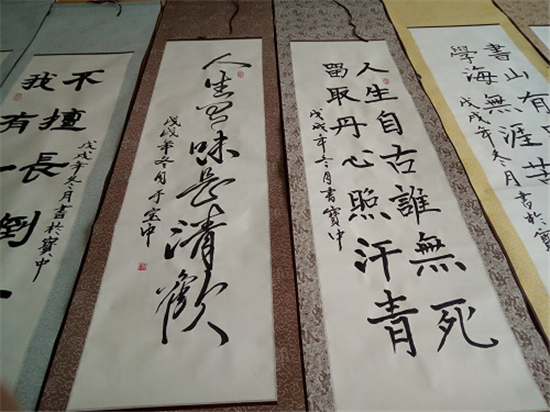 書山有
學海無涯苦
戊戌年冬月書於寶
人生自古誰無死
留取丹心照汗青
戊戌年冬月書寶中
人生有味是清歡
戊戌年冬月于宝中
不擅長倒
我有一
戊戌年冬月書於寶中